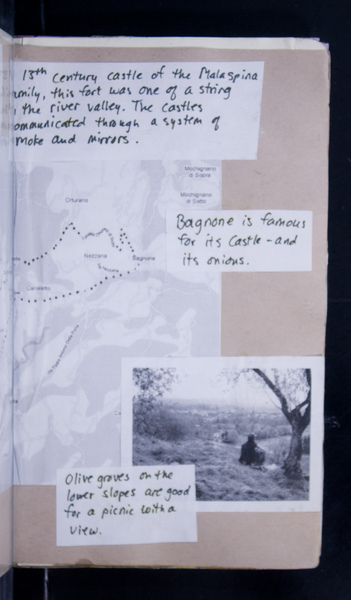 13th century castle of the Malaspina
amily, this fort was one of a string
the river valley. The castles
ommunicated through a system of
moke and mirrors.
Mochignano
di Sopra
Mochignano
di Sotto
Orturano
Bagnone is famous
for its castle - and
its onions.
Nezzana
Bagnone
Canaletto
Olive groves on the
lower slopes are good
for a picnic with a
view.